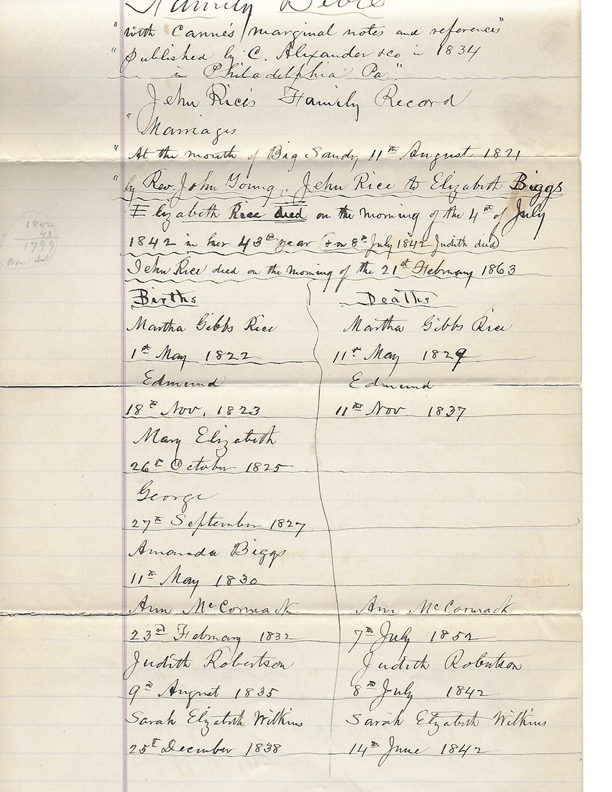 Family Bible
"with Canne's marginal notes and references"
"Published by C. Alexander & co in 1834
in Philadelphia Pa"
John Rice's Family Record
"Marriages
"At the mouth of Big Sandy 11th August 1821
"by Rev. John Young, John Rice to Elizabeth Biggs
Elizabeth Rice died on the morning of the 4th of July
1842 in her 43d year (on 8th July 1842 Judith died)
John Rice died on the morning of the 21st February 1863
1842
43
1799
Births Deaths
Martha Gibbs Rice Martha Gibbs Rice
1st May 1822 11th May 1829
Edmund Edmund
18th Nov, 1823 11th Nov 1837
Mary Elizabeth
26th October 1825
George
27th September 1827
Amanda Biggs
11th May 1830
Ann McCormack Ann McCormack
23rd February 1832 7th July 1852
Judith Robertson Judith Robertson
9th August 1835 8th July 1842
Sarah Elizabeth Wilkins Sarah Elizabeth Wilkins
25th December 1838 14th June 1842